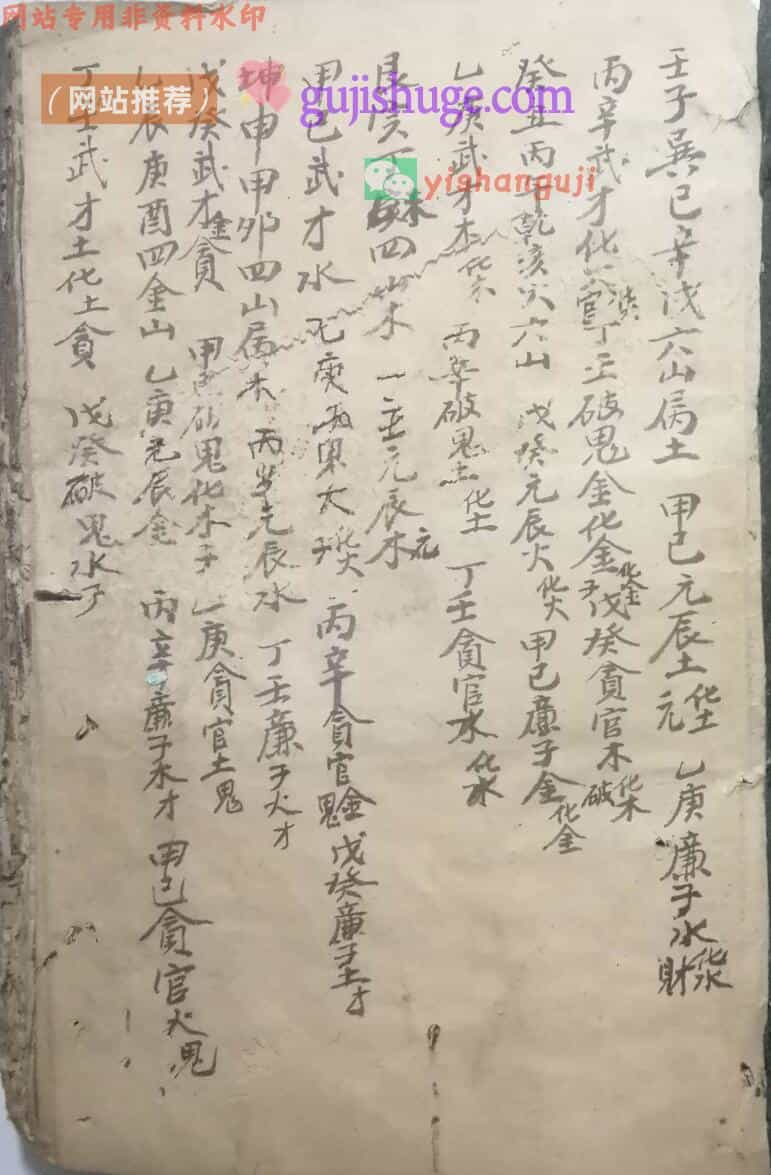 网站专用非资料水印
（网站推荐）
gujishuge.com
yishanguji
壬子巽巳辛戊六山属土 甲己元辰土化土元 乙庚廉子水化水財
丙辛武才化官丁壬破鬼金化金化金子戊癸貪官木化木破
癸丑丙午乾亥火六山 戊癸元辰火化火 甲己廉子金化金
乙庚武才木化木 丙辛破鬼土化土 丁壬貪官水化水
艮 丁 四山木 元辰木元
甲己武才水 乙庚 火化火子 丙辛貪官金鬼 戊癸廉子土才
坤申甲卯四山属木 丙辛元辰水 丁壬廉子火才
戊癸武才金貪 甲己破鬼化木子 乙庚貪官土鬼
辰庚酉四金山 乙庚元辰金 丙辛廉子水才 甲己貪官火鬼
丁壬武才土化土貪 戊癸破鬼水子